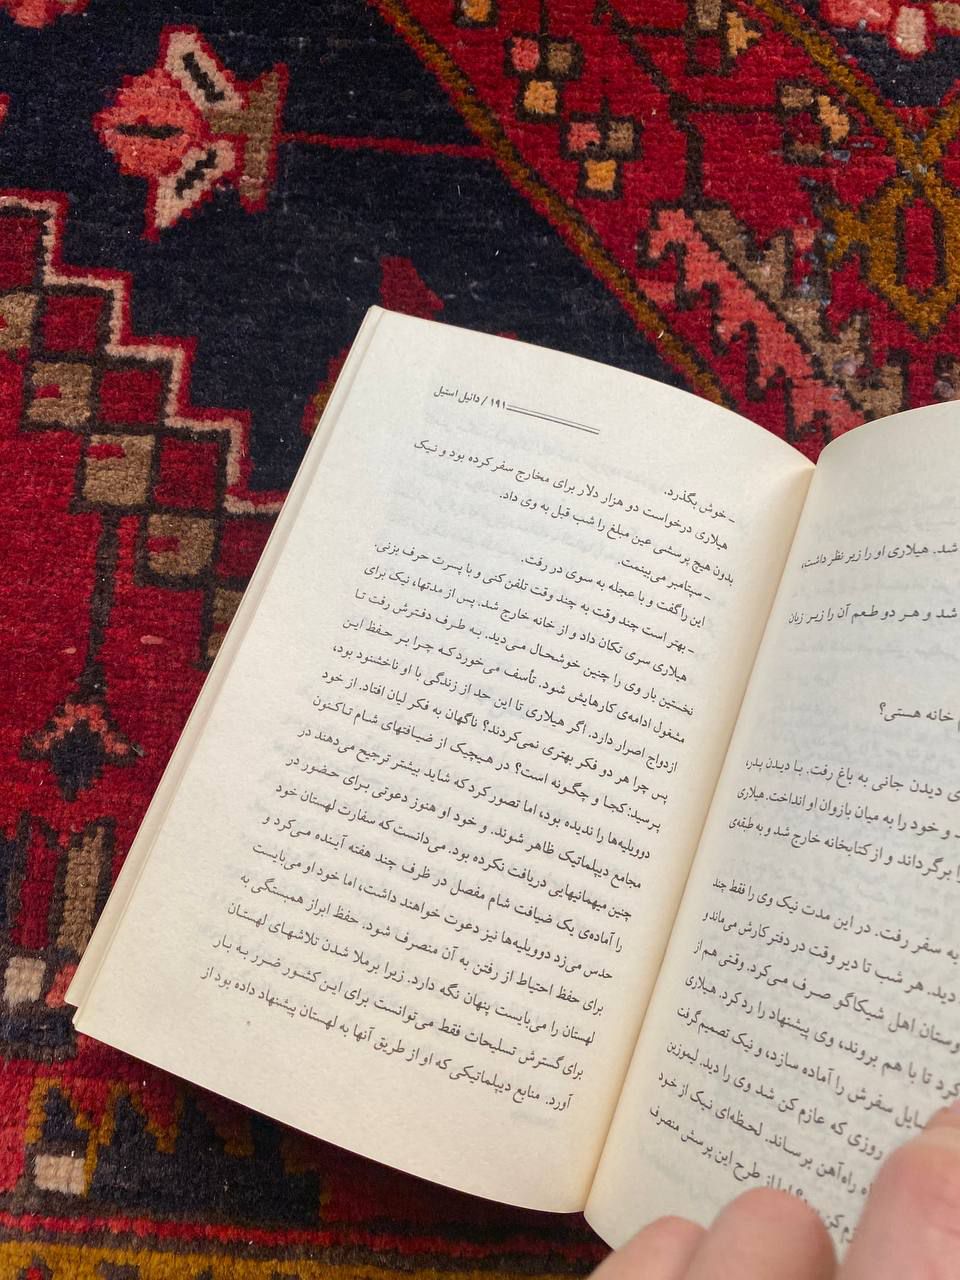 شد. هیلاری او را زیر نظر داشت،
شد و هر دو طعم آن را زیر زبان
خانه هستی؟
دیدن جانی به باغ رفت. با دیدن پدر،
و خود را به میان بازوان او انداخت. هیلاری
برگرداند و از کتابخانه خارج شد و به طبقه‌ی
به سفر رفت. در این مدت نیک وی را فقط چند
دید. هر شب تا دیر وقت در دفتر کارش می‌ماند و
دوستان اهل شیکاگو صرف می‌کرد. وقتی هم از
کرد تا با هم بروند، وی پیشنهاد را رد کرد. هیلاری
وسایل سفرش را آماده سازد، و نیک تصمیم گرفت
روزی که عازم کن شد وی را دید. لیموزین
راه‌آهن برساند. لحظه‌ای نیک از خود
از طرح این پرسش منصرف
۱۹۱ / دانیل استیل
ـ خوش بگذرد.
هیلاری درخواست دو هزار دلار برای مخارج سفر کرده بود و نیک
بدون هیچ پرسشی عین مبلغ را شب قبل به وی داد.
ـ سپتامبر می‌بینمت.
این را گفت و با عجله به سوی در رفت.
ـ بهتر است چند وقت به چند وقت تلفن کنی و با پسرت حرف بزنی.
هیلاری سری تکان داد و از خانه خارج شد. پس از مدتها، نیک برای
نخستین بار وی را چنین خوشحال می‌دید. به طرف دفترش رفت تا
مشغول ادامه‌ی کارهایش شود. تأسف می‌خورد که چرا بر حفظ این
ازدواج اصرار دارد. اگر هیلاری تا این حد از زندگی با او ناخشنود بود،
پس چرا هر دو فکر بهتری نمی‌کردند؟ ناگهان به فکر لیان افتاد. از خود
پرسید: کجا و چگونه است؟ در هیچیک از ضیافتهای شام تاکنون
دوویلیه‌ها را ندیده بود، اما تصور کرد که شاید بیشتر ترجیح می‌دهند در
مجامع دیپلماتیک ظاهر شوند. و خود او هنوز دعوتی برای حضور در
چنین میهمانیهایی دریافت نکرده بود. می‌دانست که سفارت لهستان خود
را آماده‌ی یک ضیافت شام مفصل در ظرف چند هفته آینده می‌کرد و
حدس می‌زد دوویلیه‌ها نیز دعوت خواهند داشت، اما خود او می‌بایست
برای حفظ احتیاط از رفتن به آن منصرف شود. حفظ ابراز همبستگی به
لهستان را می‌بایست پنهان نگه دارد. زیرا برملا شدن تلاشهای لهستان
برای گسترش تسلیحات فقط می‌توانست برای این کشور ضرر به بار
آورد. منابع دیپلماتیکی که او از طریق آنها به لهستان پیشنهاد داده بود از